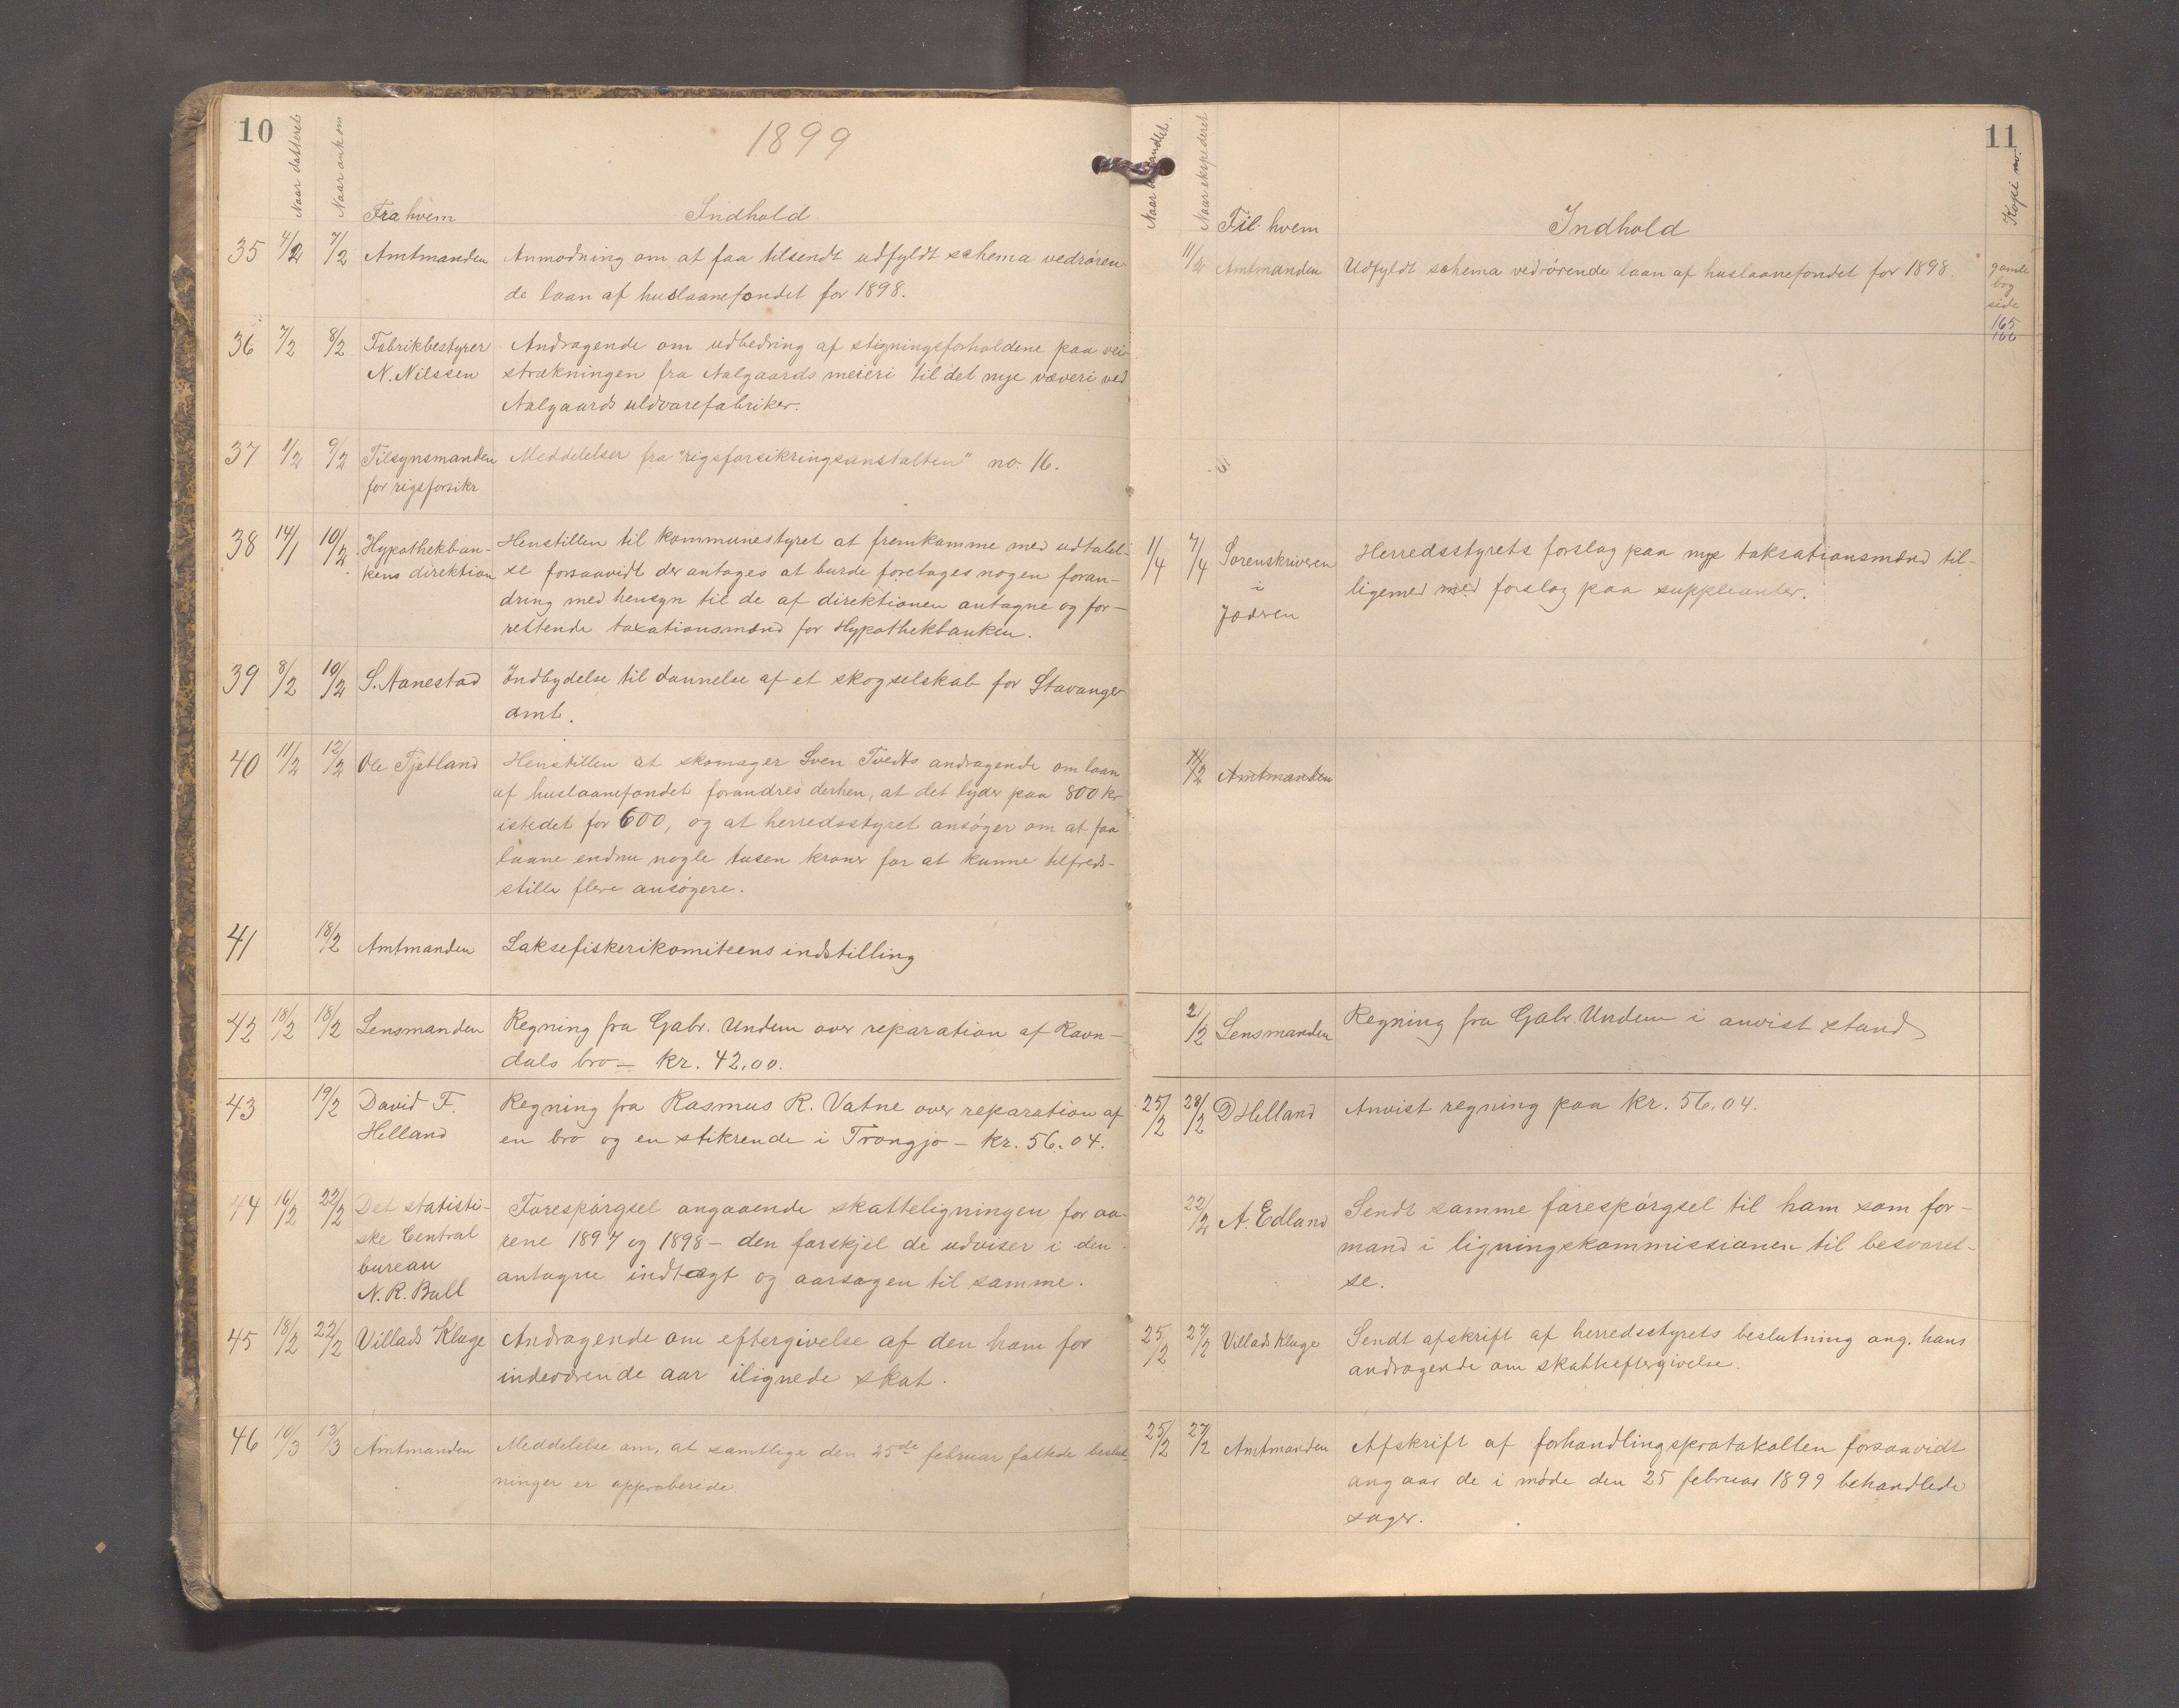 10
1899
Naar datteret
Naar ankom
Fra hvem
Indhold.
35 4/2 7/2 Amtmanden Anmodning om at faa tilsendt udfyldt schema vedrøren-
de laan af huslaanefondet for 1898.
36 7/2 8/2 Fabrikbestyrer Andragende om udbedring af stigningsforholdene paa vei-
N. Nilssen strækningen fra Aalgaards meieri til det nye væveri ved
Aalgaards uldvarefabriker.
37 1/2 9/2 Tilsynsmanden Meddelelser fra "rigsforsikringsanstalten" no. 16.
for rigsforsikr
38 14/1 10/2 Hypothekban- Henstillen til kommunestyret at fremkomme med udtalel-
kens direktion se forsaavidt der antages at burde foretages nogen foran-
dring med hensyn til de af direktionen antagne og for-
rettende taxationsmænd for Hypothekbanken.
39 8/2 10/2 S. Nanestad Indbydelse til dannelse af et skogselskab for Stavanger
amt.
40 11/2 12/2 Ole Tjetland Henstillen at skomager Sven Tvedts andragende om laan
af huslaanefondet forandres derhen, at det lyder paa 800 kr
istedet for 600, og at herredsstyret ansøger om at faa
laane endnu nogle tusen kroner for at kunne tilfreds-
stille flere ansøgere.
41 18/2 Amtmanden Laksefiskerikomiteens indstilling
42 18/2 18/2 Lensmanden Regning fra Gabr. Undem over reparation af Ravn-
dals bro – kr. 42.00.
43 19/2 David F. Regning fra Rasmus R. Vatne over reparation af
Helland en bro og en stikrende i Trongjo – kr. 56.04.
44 16/2 22/2 Det statisti- Forespørgsel angaaende skatteligningen for aa-
ske Central rene 1897 og 1898 – den forskjel de udviser i den
bureau antagne indtægt og aarsagen til samme.
N. R. Bull
45 18/2 22/2 Villads Kluge Andragende om eftergivelse af den ham for
indeværende aar ilignede skat.
46 10/3 13/3 Amtmanden Meddelelse om, at samtlige den 25de februar fattede beslut
ninger er approberede.
11
Naar
Naar ekspederet
Til hvem
Indhold
Kopi nr.
11/2 Amtmanden Udfyldt schema vedrørende laan af huslaanefondet for 1898.
gamle
bog
side
165
166
1/4 7/4 Sorenskriveren Herredsstyrets forslag paa nye taksationsmænd til-
i ligemed med forslag paa suppleanter.
Jæderen
11/2 Amtmanden
2/2 Lensmanden Regning fra Gabr. Undem i anvist stand
25/2 28/2 D Helland Anvist regning paa kr. 56.04.
22/2 A. Edland Sendt samme forespørgsel til ham som for-
mand i ligningskommissionen til besvarel-
se.
25/2 27/2 Villads Kluge Sendt afskrift af herredsstyrets beslutning ang. hans
andragende om skatteeftergivelse.
25/2 27/2 Amtmanden Afskrift af forhandlingsprotokollen forsaavidt
angaar de i møde den 25 februar 1899 behandlede
sager.